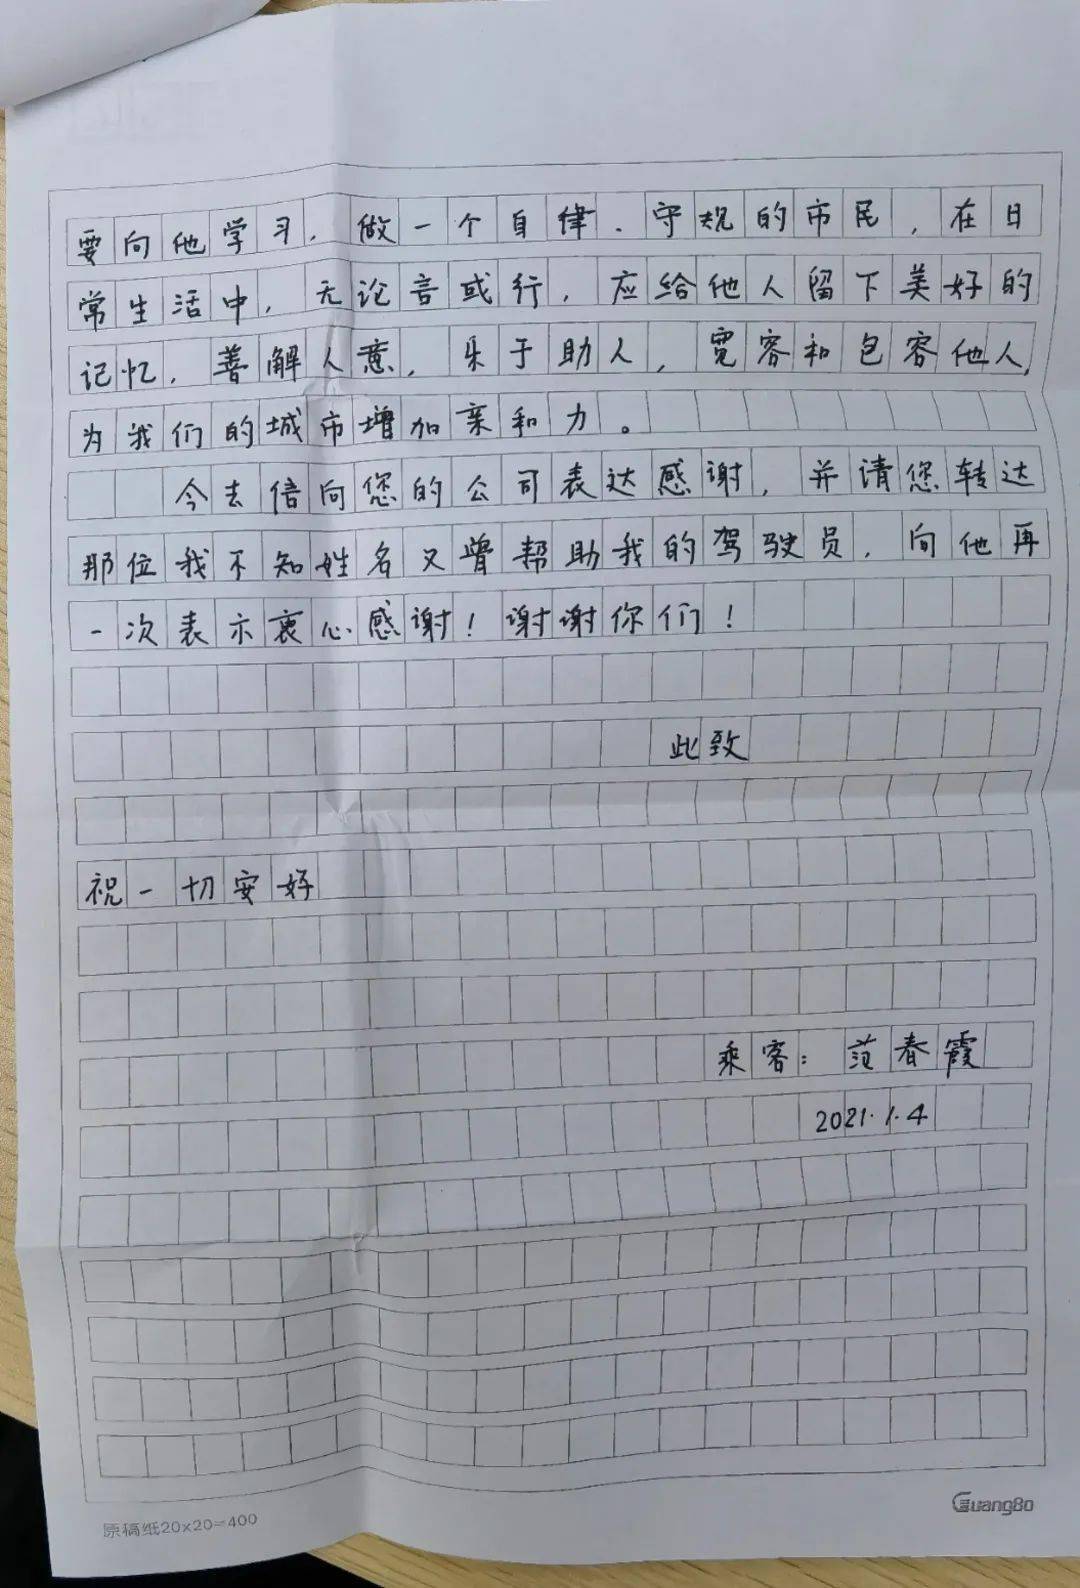 要向他学习，做一个自律、守规的市民，在日
常生活中，无论言或行，应给他人留下美好的
记忆，善解人意，乐于助人，宽容和包容他人，
为我们的城市增加亲和力。
今去信向您的公司表达感谢，并请您转达
那位我不知姓名又曾帮助我的驾驶员，向他再
一次表示衷心感谢！谢谢你们！
此致
祝一切安好
乘客：范春霞
2021.1.4
原稿纸20×20=400
GuangBo